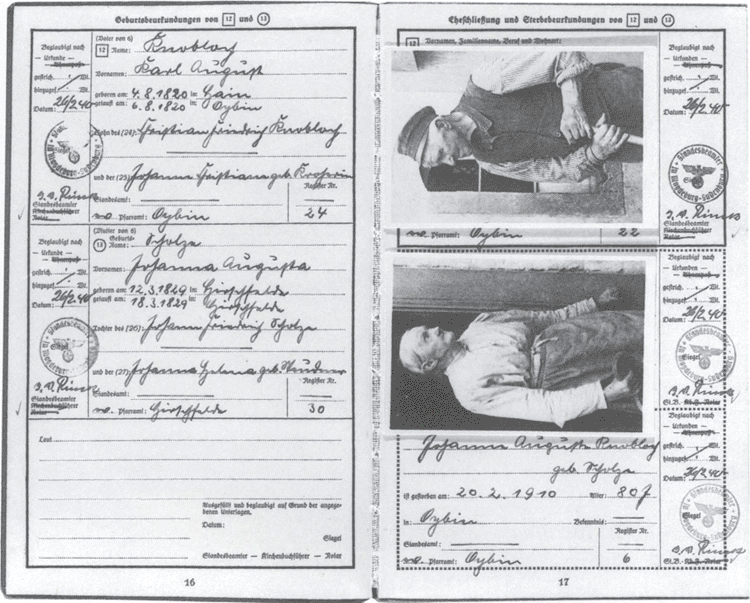 Geburtsbeurkundungen von 12 und 13
Beglaubigt nach
— Urkunde —
— Ahnenpaß —
gestrich. Wt.
hinzugef. Wt.
Datum: 26/2.40
Siegel
J. V.
Standesbeamter
Kirchenbuchführer
Notar
(Vater von 6)
12 Name: Knobloch
Vornamen: Karl August
geboren am: 4.8.1820 in: Hain
getauft am: 6.8.1820 in: Oybin
Sohn des (24): Christian Friedrich Knobloch
und der (25) Johanne Christiane geb.
Register Nr.
Standesamt:
ev. Pfarramt: Oybin 24
Beglaubigt nach
— Urkunde —
— Ahnenpaß —
gestrich. Wt.
hinzugef. Wt.
Datum: 26/2.40
J. V.
Standesbeamter
Kirchenbuchführer
Notar
(Mutter von 6)
13 Geburts-Name: Scholze
Vornamen: Johanna Augusta
geboren am: 12.3.1829 in: Hirschfelde
getauft am: 18.3.1829 in: Hirschfelde
Tochter des (26): Johann Friedrich Scholze
und der (27) Johanna Helena geb.
Register Nr.
Standesamt:
ev. Pfarramt: Hirschfelde 30
Laut
Ausgefüllt und beglaubigt auf Grund der angegebenen Unterlagen.
Datum:
Siegel
Standesbeamter – Kirchenbuchführer – Notar
16
Eheschließung und Sterbebeurkundungen von 12 und 13
12 Vornamen, Familienname, Beruf und Wohnort:
ev. Pfarramt: Oybin 22
Beglaubigt nach
— Urkunden —
— Ahnenpaß —
gestrich. Wt.
hinzugef. Wt.
Datum: 26/2.40
Standesbeamter
J. V.
Beglaubigt nach
— Urkunden —
— Ahnenpaß —
gestrich. Wt.
hinzugef. Wt.
Datum: 26/2.40
Siegel
J. V.
St.B. – Kb.F. – Notar
Johanne Auguste Knobloch
geb. Scholze
ist gestorben am: 20.2.1910 Alter: 80 J.
in: Oybin Bekenntnis:
Register Nr.
Standesamt:
ev. Pfarramt: Oybin 6
Beglaubigt nach
— Urkunden —
— Ahnenpaß —
gestrich. Wt.
hinzugef. Wt.
Datum: 26/2.40
Siegel
J. V.
St.B. – Kb.F. – Notar
17